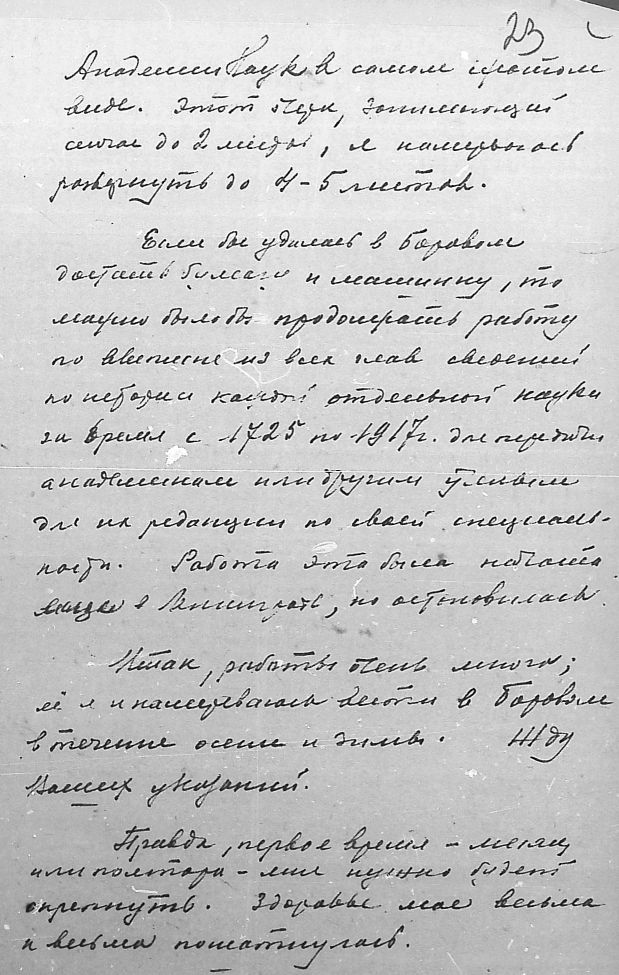 23
Академии Наук в самом сжатом
виде. Этот очерк, занимающий
сейчас до 2 листов, я намереваюсь
развернуть до 4-5 листов.
Если бы удалось в Боровом
достать бумаги и машинку, то
можно было бы продолжать работу
по выписке из всех глав сведений
по истории каждой отдельной науки
за время с 1725 по 1917 г. для передачи
академикам или другим ученым
для их редакции по своей специаль-
ности. Работа эта была начата
еще в Ленинграде, но остановилась.
Итак, работы очень много;
её я и намереваюсь вести в Боровом
в течение осени и зимы. Жду
Ваших указаний.
Правда, первое время - месяц
или полтора - мне нужно будет
отдохнуть. Здоровье мое весьма
и весьма пошатнулось.